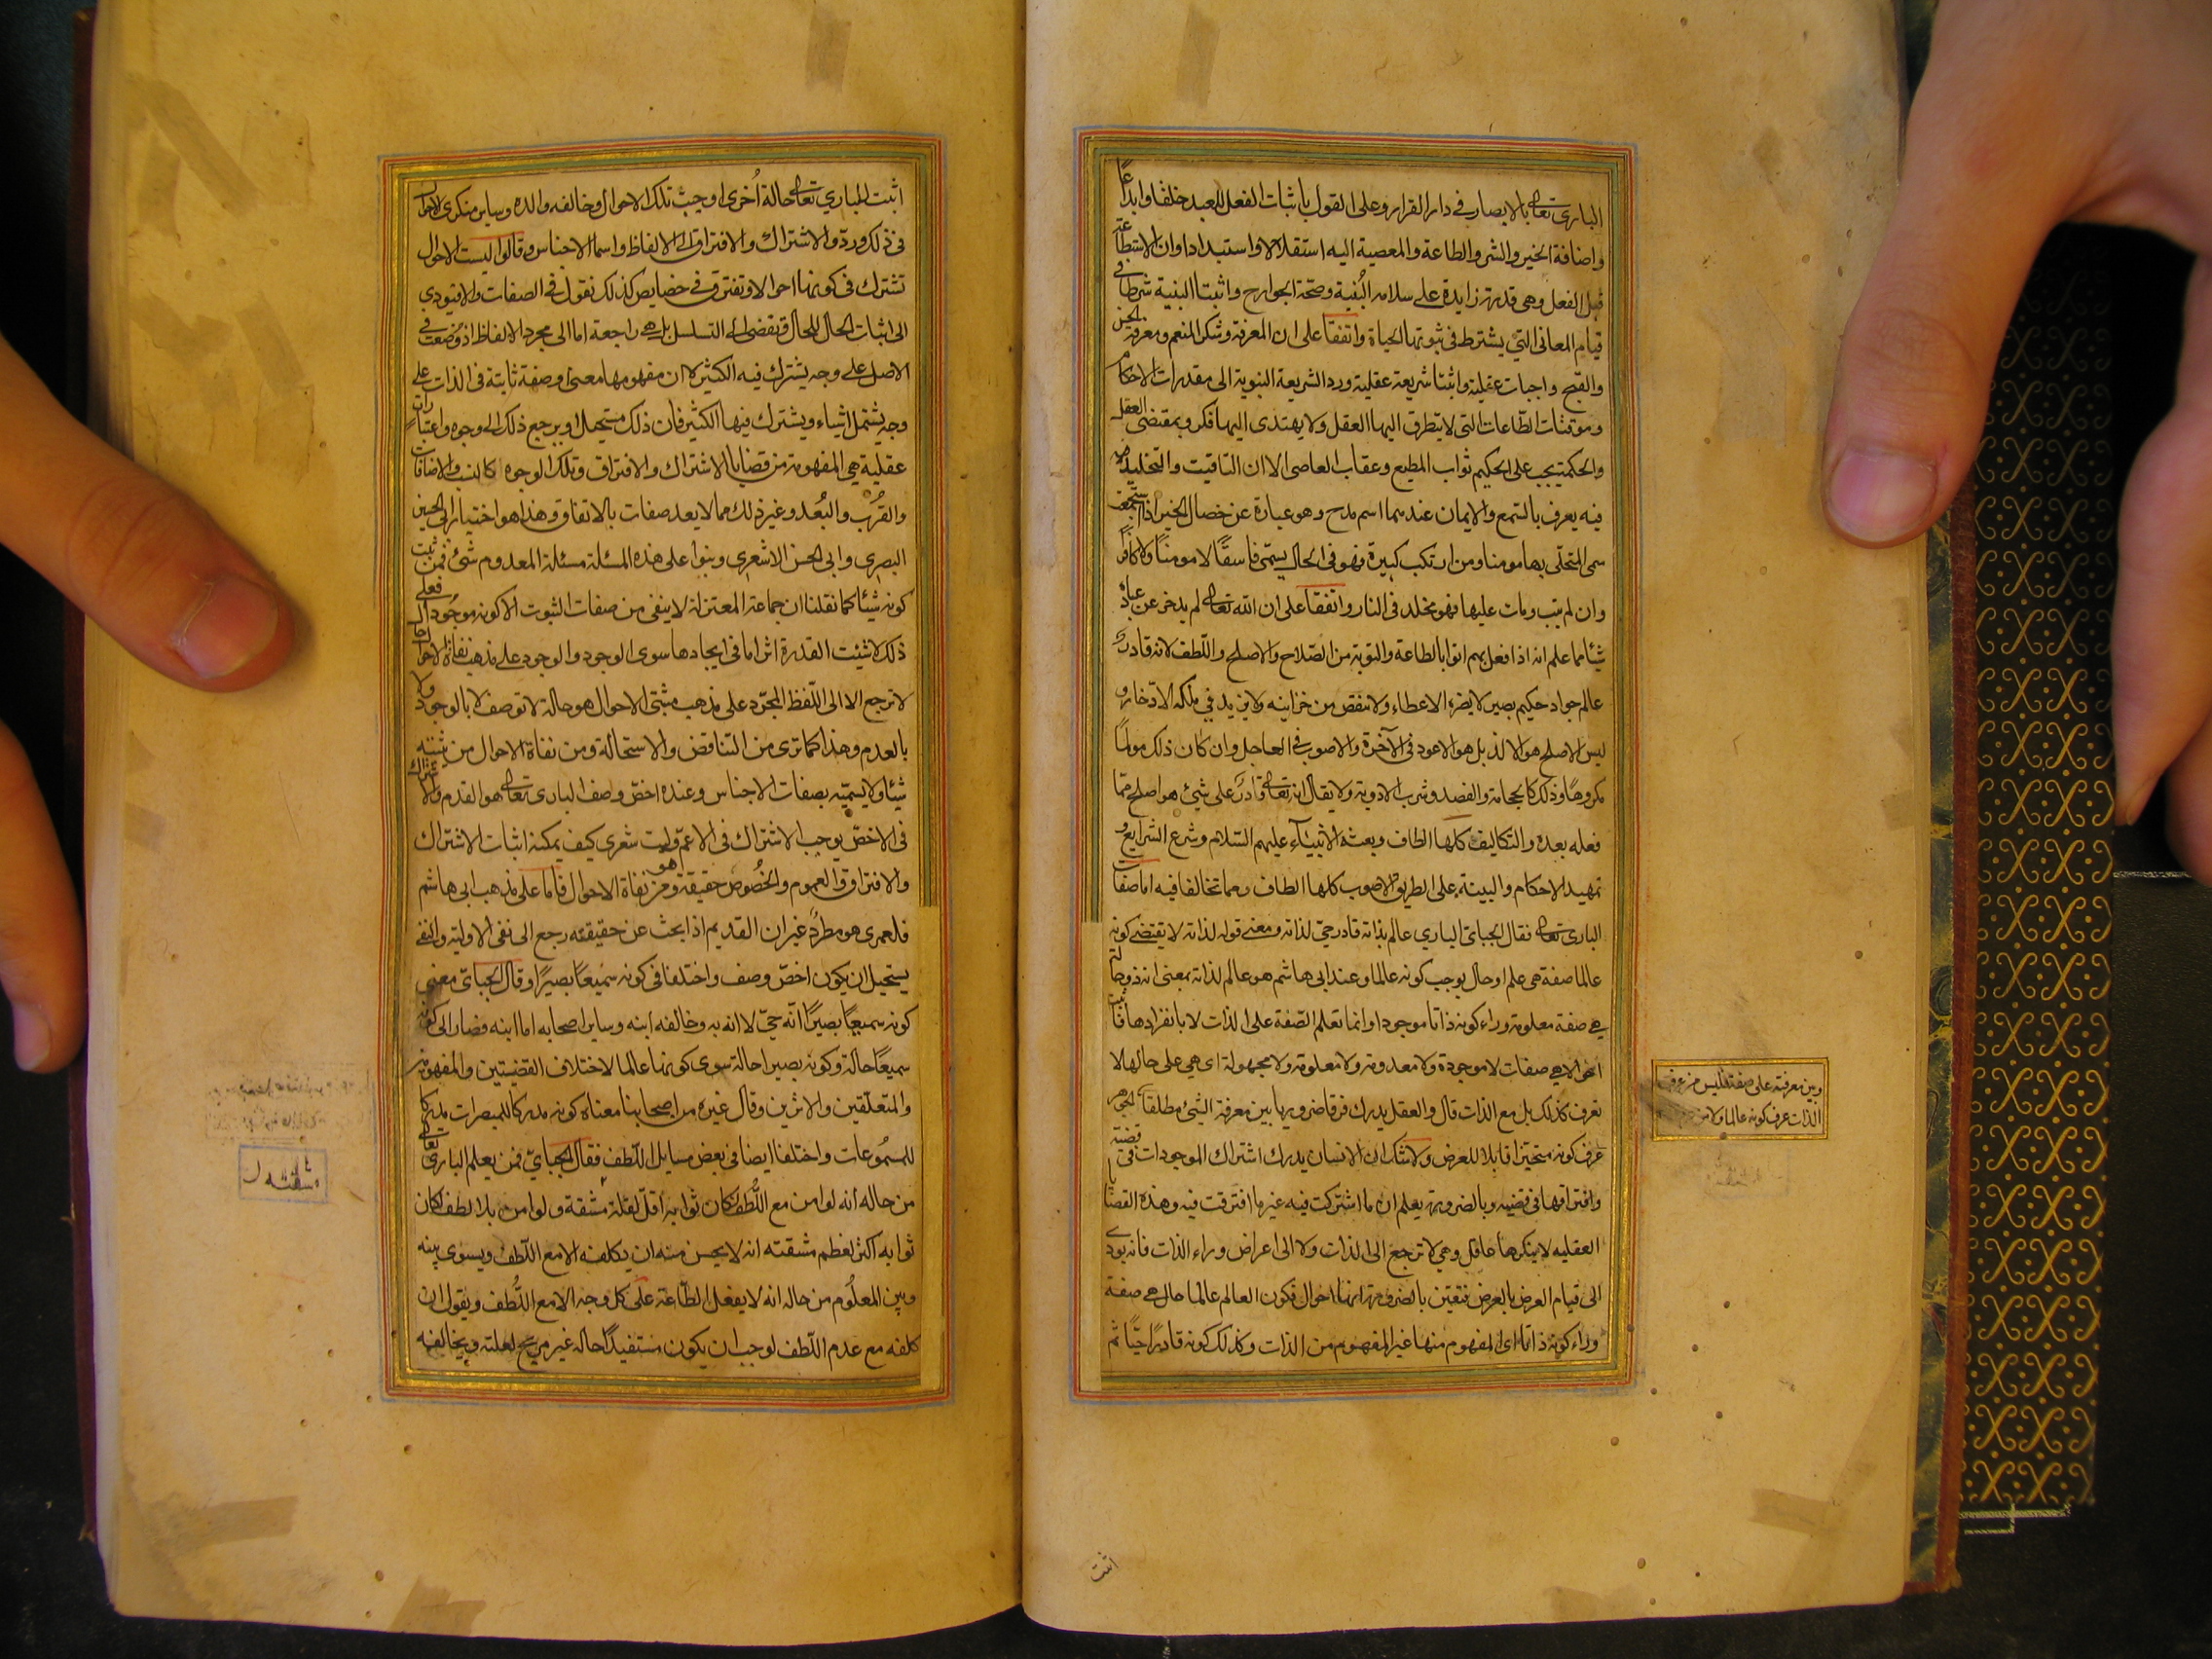 الباري تعالى بالابصار في دار القرار وعلى القول باثبات الفعل للعبد خلقا وابداعًا
واضافة الخير والشر والطاعة والمعصية اليه استقلالا واستبدادا وان الاستطاعة
قبل الفعل وهي قدرة زايدة على سلامة البُنية وصحّة الجوارح واثبتا البنية شرطا في
قيام المعاني التي يشترط في ثبوتها الحياة واتفقا على ان المعرفة وشكر المنعم ومعرفة الحسن
والقبح واجبات عقلية واثبتا شريعة عقلية وردا الشريعة النبوية الى مقدرات الاحكام
وموقتات الطّاعات التي لا يتطرق اليها العقل ولا يهتدى اليها فكر وبمقتضى العقل
والحكمة يجب على الحكيم ثواب المطيع وعقاب العاصي الا ان التاقيت والتخليد
فيه يعرف بالسّمع والايمان عندهما اسم مدح وهو عبارة عن خصال الخير اذا استجمعت
سمى المتحلّى بها مومنا ومن ارتكب كبيرة فهو في الحال يسمّى فاسقًا لا مومنًا ولا كافرًا
وان لم يتب ومات عليها فهو مخلد في النار واتفقا على ان الله تعالى لم يدخر عن عباده
شيًا مما علم انه اذا فعل بهم اتوا بالطاعة والتوبة من الصّلاح والاصلح واللّطف لانه قادر
عالم جواد حكيم بصير لا يضره الاعطاء ولا ينقص من خزاينه ولا يزيد في ملكه الادّخار و
ليس الاصلح هو الالذ بل هو الاعود في الآخرة والاصوب في العاجل وان كان ذلك مولمًا
مكروهًا وذلك كالحجامة والفصد وشرب الادوية ولا يقال انه تعالى قادر على شيئ هو اصلح ممّا
فعله بعبده والتكاليف كلها الطاف وبعثة الانبياء عليهم السّلام وشرع الشرايع و
تمهيد الاحكام والتنبيه على الطريق الاصوب كلها الطاف ومما تخالفا فيه اما صفات
الباري تعالى فقال الجبائي الباري عالم بذاته قادر حيّ لذاته ومعنى قوله لذاته لا يقتضي كونه
عالما صفة هي علم او حال يوجب كونه عالما وعند ابي هاشم هو عالم لذاته بمعنى انه ذو حالة
هي صفة معلومة وراء كونه ذاتا موجودا وانما تعلم الصّفة على الذات لا بانفرادها فاثبت
احوالا هي صفات لا موجودة ولا معدومة ولا معلومة ولا مجهولة اي هي على حالها لا
تعرف كذلك بل مع الذات قال والعقل يدرك فرقا ضروريا بين معرفة الشئ مطلقا الجوهر
عرف كونه متحيزا قابلا للعرض ولا شك ان الانسان يدرك اشتراك الموجودات في قضية
وافتراقها في قضية وبالضرورة يعلم ان ما اشتركت فيه غير ما افترقت فيه وهذه القضايا
العقليه لا ينكرها عاقل وهي لا ترجع الى الذات ولا الى اعراض وراء الذات فانه يودي
الى قيام العرض بالعرض فتعين بالضرورة انها احوال فكون العالم عالما حال هي صفة
وراء كونه ذاتا اي المفهوم منها غير المفهوم من الذات وكذلك كونه قادرًا حيًّا ثم
وبين معرفته على صفة فليس من عرف
الذات عرف كونه عالما ولا من
اثبت
اثبت للباري تعالى حالة اُخرى اوجبت تلك الاحوال وخالفه والده وساير منكري الاحوال
في ذلك وردّوا الاشتراك والافتراق الى الالفاظ واسما الاجناس وقالوا اليست الاحوال
تشترك في كونها احوالا وتفترق في خصايص كذلك نقول في الصفات والا فيودي
الى اثبات الحال للحال فيفضي الى التسلسل بل هي راجعة اما الى مجرد الالفاظ اذ وُضعت في
الاصل على وجه يشترك فيه الكثير لا ان مفهومها معنى او صفة ثابتة في الذات على
وجه يشتمل اشياء ويشترك فيها الكثير فان ذلك مستحيل او يرجع ذلك الى وجوه واعتبارات
عقلية هي المفهومة من قضايا الاشتراك والافتراق وتلك الوجوه كالنسب والاضافات
والقُرب والبُعد وغير ذلك مما لا يعد صفات بالاتفاق وهذا هو اختيار ابي الحسين
البصري وابي الحسن الاشعري وبنوا على هذه المسئلة مسئلة المعدوم شئ فمن ثبت
كونه شيئا كما نقلنا ان جماعة المعتزلة لا ينفي من صفات الثبوت الا كونه موجُودا فعلى
ذلك لا تثبت القدرة اثرا ما في ايجادها سوى الوجود والوجود على مذهب نفاة الاحوال
لا ترجع الا الى اللّفظ المجرّد على مذهب مثبتي الاحوال هو حالة لا توصف لا بالوجود ولا
بالعدم وهذا كما ترى من التناقض والاستحالة ومن نفاة الاحوال من يثبته
شيئا ولا يسمّيه بصفات الاجناس وعنده اخصّ وصف الباري تعالى هو القدم والاشتراك
في الاخصّ يوجب الاشتراك في الاعمّ وليت شعري كيف يمكنه اثبات الاشتراك
والافتراق والعموم والخصُوص حقيقة وهو من نفاة الاحوال فاما على مذهب ابي هاشم
فلعمري هو مطردٌ غير ان القديم اذا بحث عن حقيقته رجع الى نفي الاولية والنفي
يستحيل ان يكون اخصّ وصف واختلفا في كونه سميعًا بصيرًا وقال الجبائي معنى
كونه سميعًا بصيرًا انّه حيّ لا افة به وخالفه ابنه وساير اصحابه اما ابنه فصار الى كونه
سميعًا حالة وكونه بصيرا حالة سوى كونها عالما لاختلاف القضيتين والمفهومين
والمتعلّقين والاثرين وقال غيره من اصحابنا معناه كونه مدركا للمبصرات مدركا
للمسمُوعات واختلفا ايضا في بعض مسايل اللّطف فقال الجبايّ فمن يعلم الباري تعالى
من حاله انه لو امن مع اللُّطف لكان ثوابه اقلّ لقلة مشقة ولو امن بلا لطف لكان
ثوابه اكثر لعظم مشقته انه لا يحسن منه ان يكلفه الا مع اللّطف ويسوي بينه
وبين المعلُوم من حاله انه لا يفعل الطّاعة على كل وجه الا مع اللُّطف ويقول ان
كلفه مع عدم اللّطف لوجب ان يكون مستفيدًا حاله غير مزيح لعلته ويخالفه